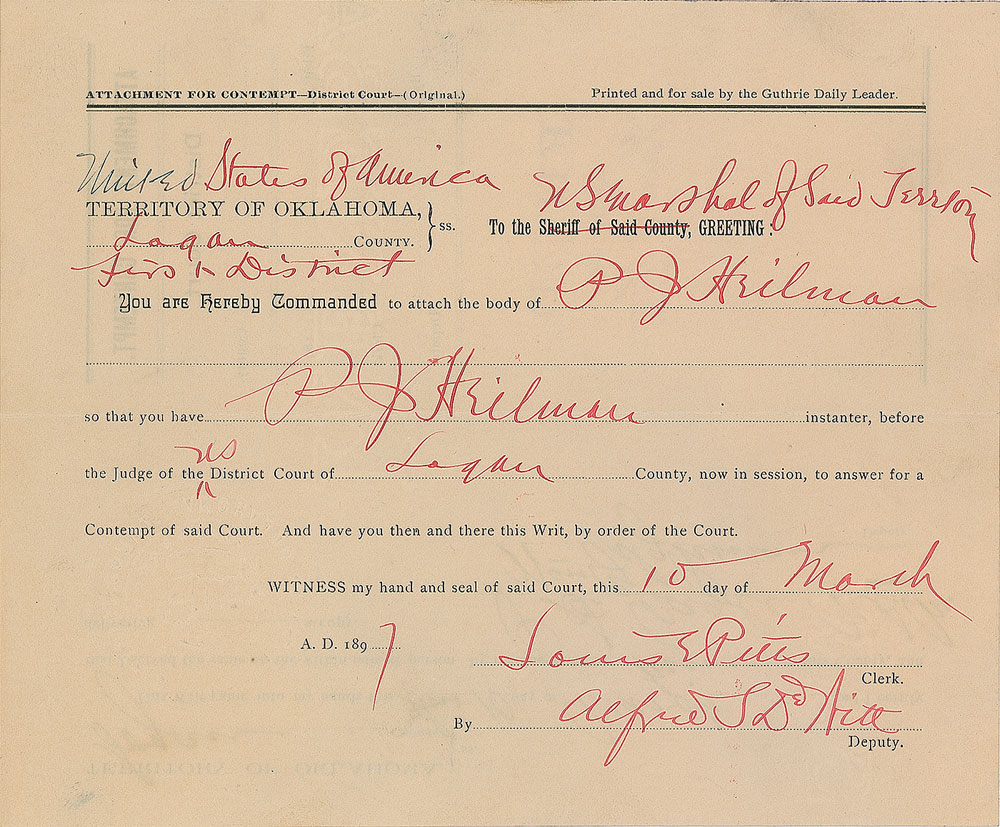 ATTACHMENT FOR CONTEMPT—District Court—(Original.) Printed and for sale by the Guthrie Daily Leader.
United States of America
TERRITORY OF OKLAHOMA,
Logan COUNTY. } ss.
First District
U S Marshal of Said Territory
To the Sheriff of Said County, GREETING:
You are Hereby Commanded to attach the body of P J Heilman
so that you have P J Heilman instanter, before
the Judge of the US District Court of Logan County, now in session, to answer for a
Contempt of said Court. And have you then and there this Writ, by order of the Court.
WITNESS my hand and seal of said Court, this 10 day of March
A. D. 1897
Louis E Pitts
Clerk.
By Alfred S
Deputy.